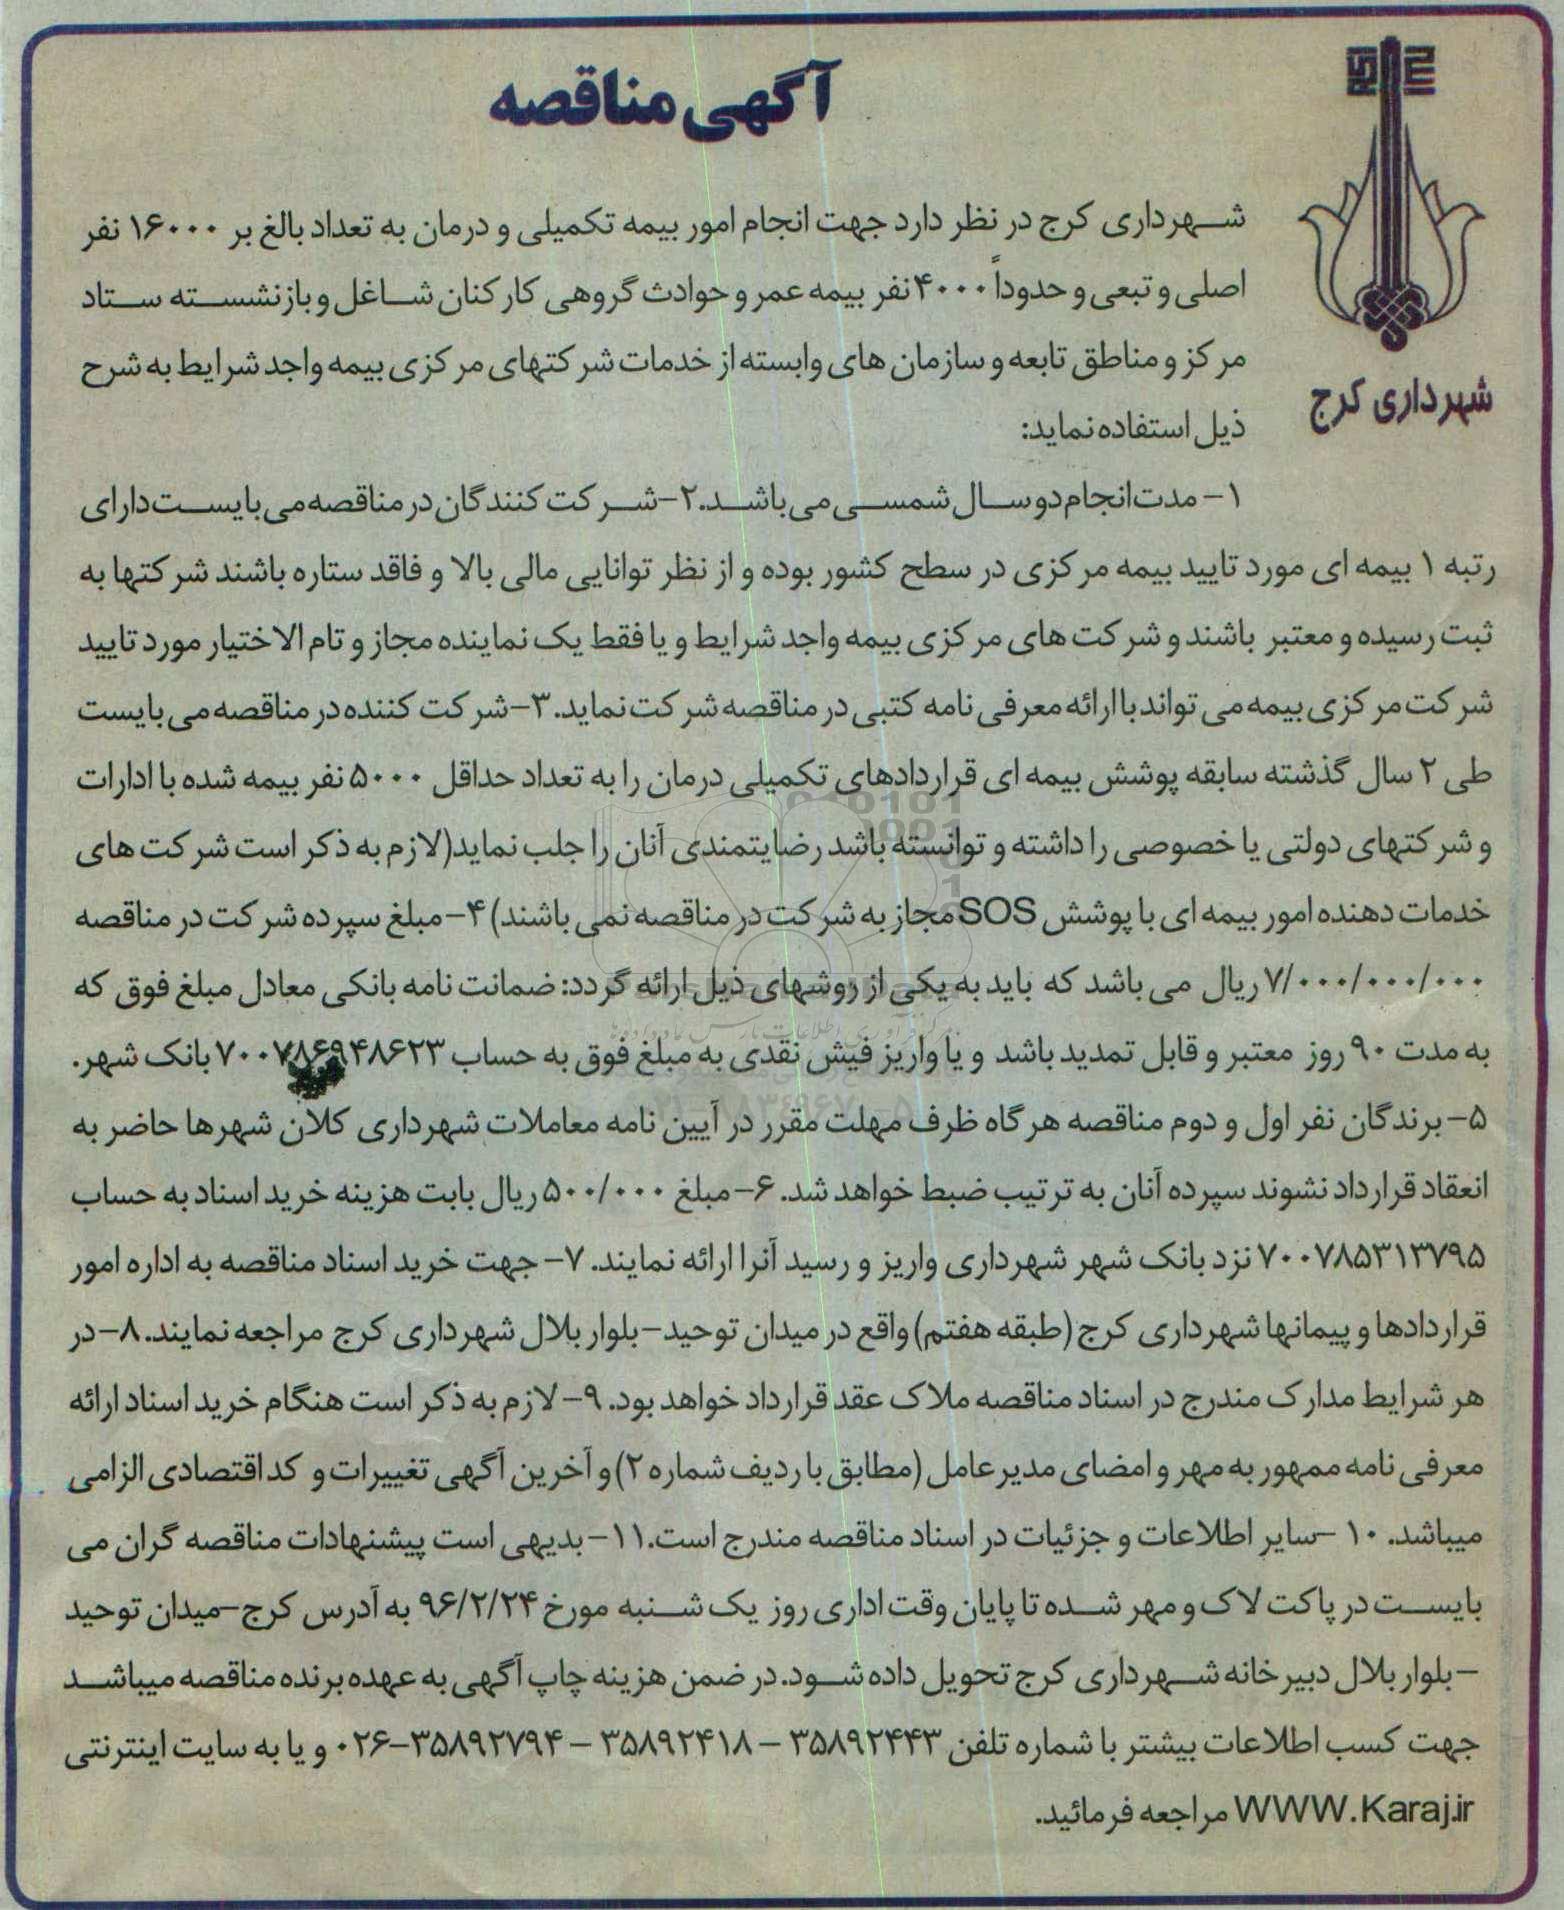 آگهی مناقصه
شهرداری کرج
شهرداری کرج در نظر دارد جهت انجام امور بیمه تکمیلی و درمان به تعداد بالغ بر ۱۶۰۰۰ نفر
اصلی و تبعی و حدوداً ۴۰۰۰ نفر بیمه عمر و حوادث گروهی کارکنان شاغل و بازنشسته ستاد
مرکز و مناطق تابعه و سازمان های وابسته از خدمات شرکتهای مرکزی بیمه واجد شرایط به شرح
ذیل استفاده نماید:
۱- مدت انجام دو سال شمسی می باشد.۲-شرکت کنندگان در مناقصه می بایست دارای
رتبه ۱ بیمه ای مورد تایید بیمه مرکزی در سطح کشور بوده و از نظر توانایی مالی بالا و فاقد ستاره باشند شرکتها به
ثبت رسیده و معتبر باشند و شرکت های مرکزی بیمه واجد شرایط و یا فقط یک نماینده مجاز و تام الاختیار مورد تایید
شرکت مرکزی بیمه می تواند با ارائه معرفی نامه کتبی در مناقصه شرکت نماید. ۳-شرکت کننده در مناقصه می بایست
طی ۲ سال گذشته سابقه پوشش بیمه ای قراردادهای تکمیلی درمان را به تعداد حداقل ۵۰۰۰ نفر بیمه شده با ادارات
و شرکتهای دولتی یا خصوصی را داشته و توانسته باشد رضایتمندی آنان را جلب نماید(لازم به ذکر است شرکت های
خدمات دهنده امور بیمه ای با پوشش SOS مجاز به شرکت در مناقصه نمی باشند) ۴- مبلغ سپرده شرکت در مناقصه
۷/۰۰۰/۰۰۰/۰۰۰ ریال می باشد که باید به یکی از روشهای ذیل ارائه گردد: ضمانت نامه بانکی معادل مبلغ فوق که
به مدت ۹۰ روز معتبر و قابل تمدید باشد و یا واریز فیش نقدی به مبلغ فوق به حساب ۷۰۰۷۸۶۹۴۸۶۲۳ بانک شهر.
۵- برندگان نفر اول و دوم مناقصه هرگاه ظرف مهلت مقرر در آیین نامه معاملات شهرداری کلان شهرها حاضر به
انعقاد قرارداد نشوند سپرده آنان به ترتیب ضبط خواهد شد. ۶- مبلغ ۵۰۰/۰۰۰ ریال بابت هزینه خرید اسناد به حساب
۷۰۰۷۸۵۳۱۳۷۹۵ نزد بانک شهر شهرداری واریز و رسید آنرا ارائه نمایند. ۷- جهت خرید اسناد مناقصه به اداره امور
قراردادها و پیمانها شهرداری کرج (طبقه هفتم) واقع در میدان توحید- بلوار بلال شهرداری کرج مراجعه نمایند. ۸- در
هر شرایط مدارک مندرج در اسناد مناقصه ملاک عقد قرارداد خواهد بود. ۹- لازم به ذکر است هنگام خرید اسناد ارائه
معرفی نامه ممهور به مهر و امضای مدیرعامل (مطابق با ردیف شماره ۲) و آخرین آگهی تغییرات و کد اقتصادی الزامی
میباشد. ۱۰ -سایر اطلاعات و جزئیات در اسناد مناقصه مندرج است. ۱۱- بدیهی است پیشنهادات مناقصه گران می
بایست در پاکت لاک و مهر شده تا پایان وقت اداری روز یک شنبه مورخ ۹۶/۲/۲۴ به آدرس کرج-میدان توحید
- بلوار بلال دبیرخانه شهرداری کرج تحویل داده شود. در ضمن هزینه چاپ آگهی به عهده برنده مناقصه میباشد
جهت کسب اطلاعات بیشتر با شماره تلفن ۳۵۸۹۲۴۴۳ - ۳۵۸۹۲۴۱۸ - ۳۵۸۹۲۷۹۴-۰۲۶ و یا به سایت اینترنتی
WWW.Karaj.ir مراجعه فرمائید.